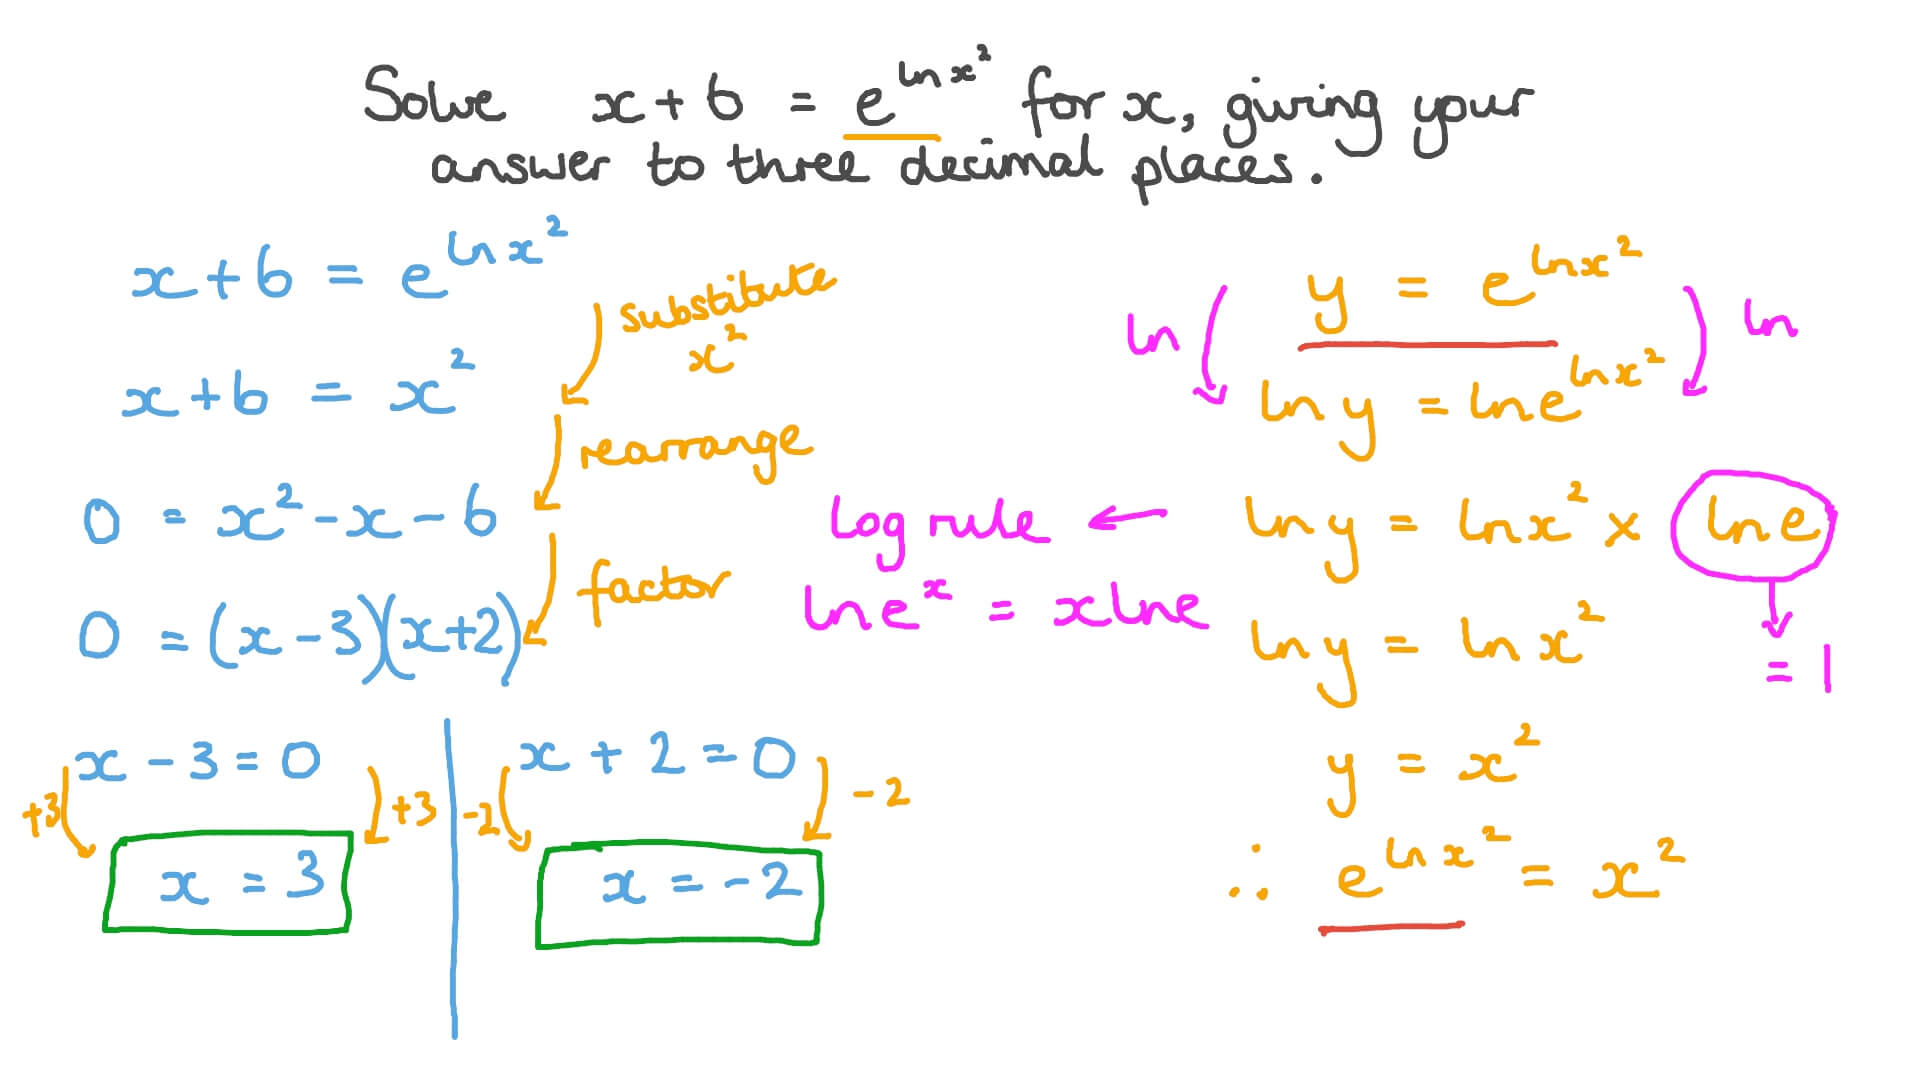 Solve x+6 = e^{ln x^2} for x, giving your
answer to three decimal places.
x+6 = e^{ln x^2}
substitute
x^2
x+6 = x^2
rearrange
0 = x^2-x-6
factor
0 = (x-3)(x+2)
x-3=0
+3
+3
x=3
x+2=0
-2
-2
x=-2
y = e^{ln x^2}
ln
ln
ln y = ln e^{ln x^2}
log rule ←
ln e^x = x ln e
ln y = ln x^2 × ln e
= 1
ln y = ln x^2
y = x^2
∴ e^{ln x^2} = x^2